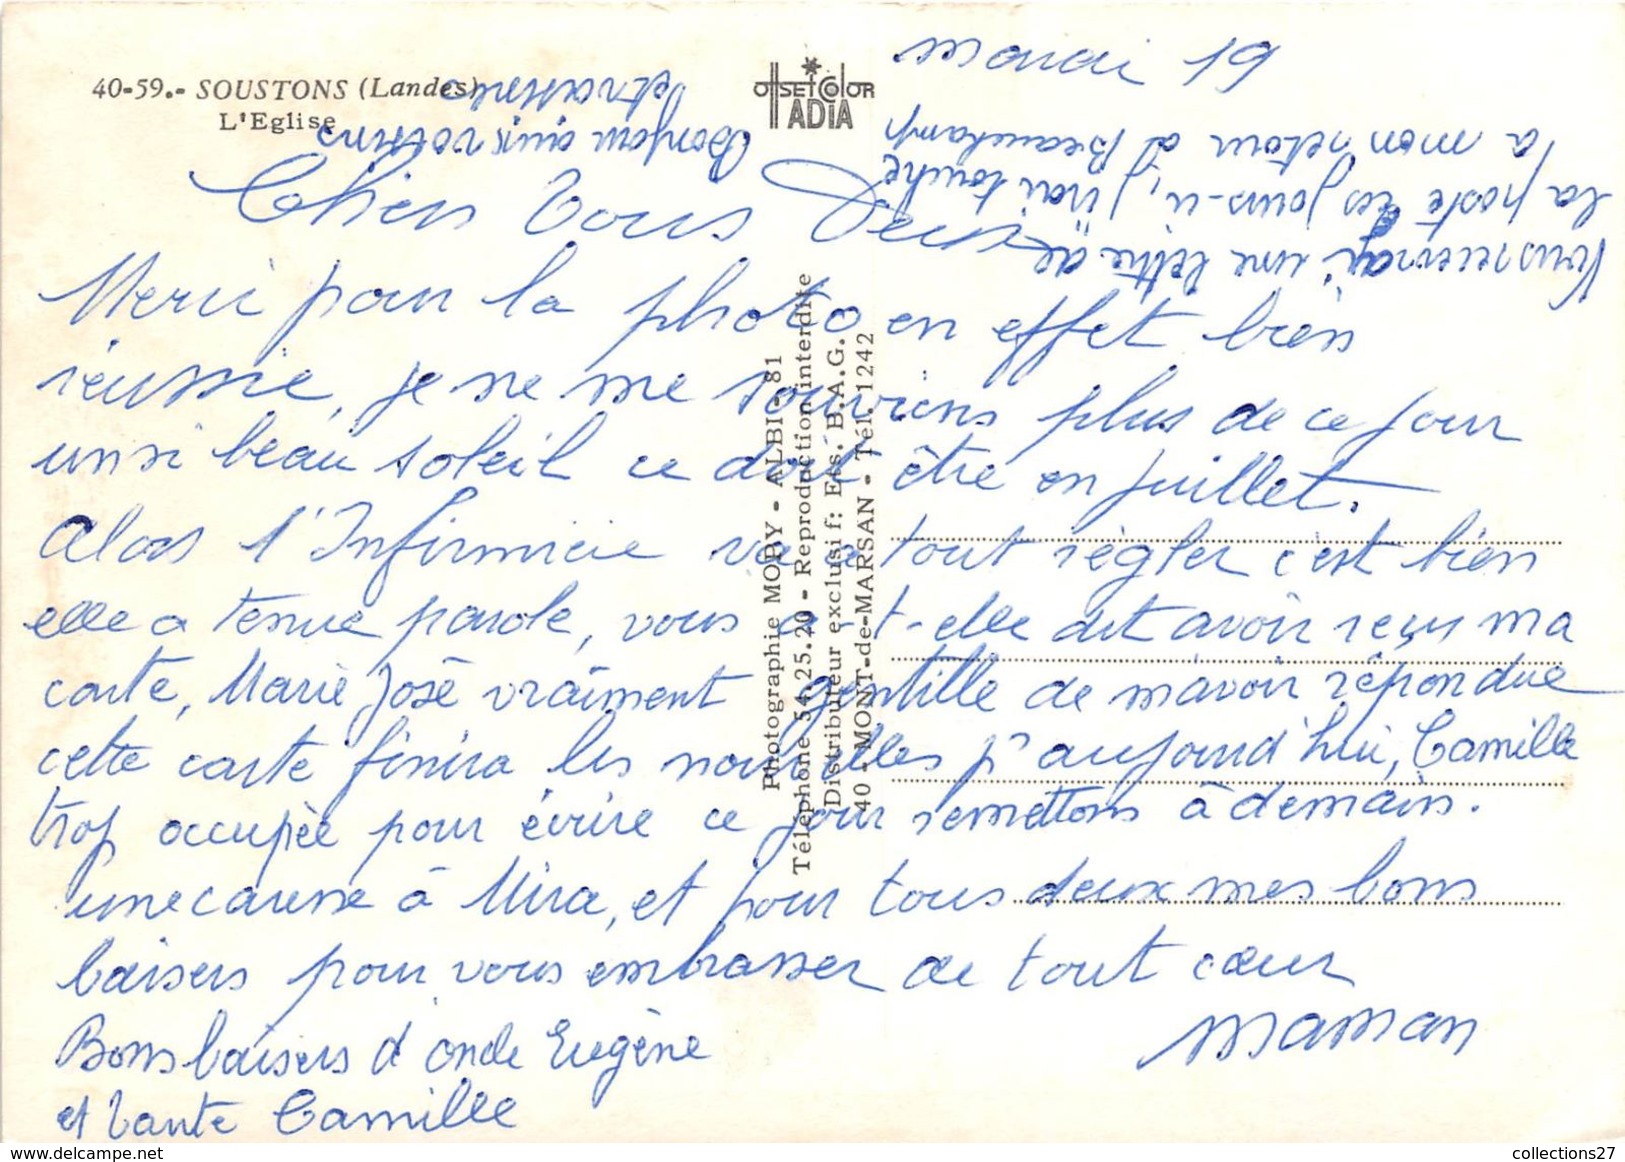 40-59.- SOUSTONS (Landes)
L'Eglise
OffSEtColOR
ADIA
mardi 19
Chers Tous Deux
Merci pour la photo en effet bien
réussie, je ne me souviens plus de ce jour
un si beau soleil ce doit être en juillet.
Alors l'Infirmière va tout régler c'est bien
elle a tenue parole, vous a-t-elle dit avoir reçu ma
carte, Marie José vraiment gentille de m'avoir répondue
cette carte finira les nouvelles p' aujourd'hui, Camille
trop occupée pour écrire ce jour remettons à demain.
une caresse à Mira, et pour tous deux mes bons
baisers pour vous embrasser de tout cœur
Maman
Bons baisers d'oncle Eugène
et Tante Camille
Vous recevrai une lettre de
la poste ces jours-ci, j'irai touché
à mon retour à Beauchamp
Bonjour aux voisins
et voisine
Photographie MOPY - ALBI - 81
Téléphone 54.25.20 - Reproduction interdite
Distributeur exclusif: Ets. B.A.G.
40 - MONT-de-MARSAN - Tél. 1242
collections27